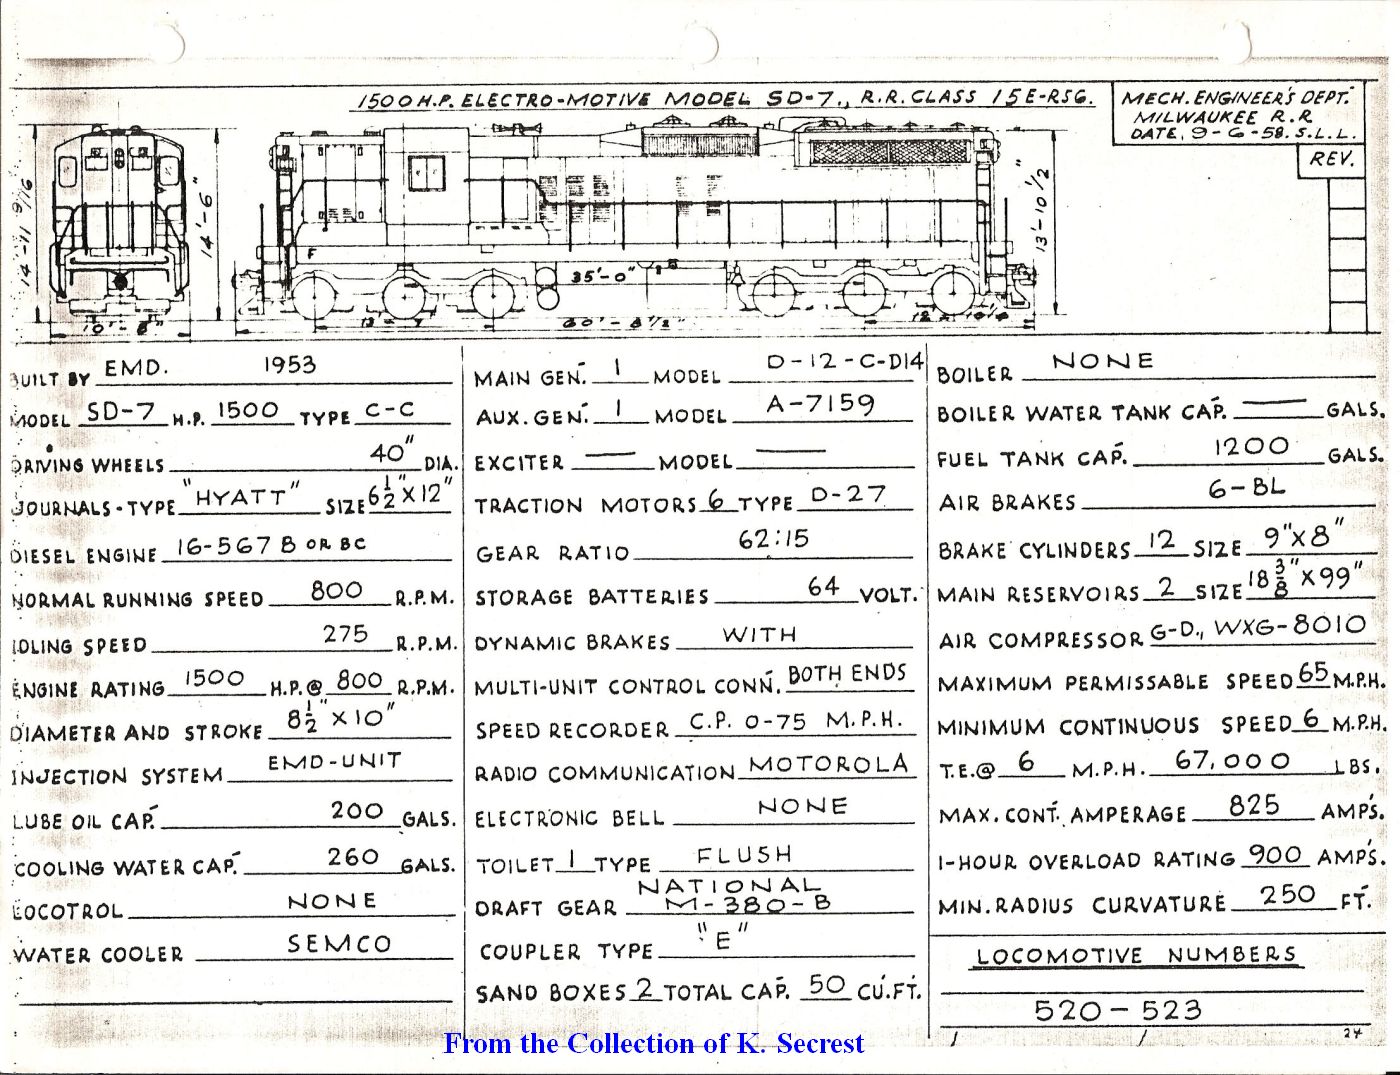 1500 H.P. ELECTRO-MOTIVE MODEL SD-7., R.R. CLASS 15E-RSG.
MECH. ENGINEER'S DEPT.
MILWAUKEE R.R
DATE. 9-6-58. S.L.L.
REV.
14'-11 9/16
14'-6"
10'-8"
F
35'-0"
60'-8 1/2"
13'-10 1/2"
BUILT BY EMD. 1953
MODEL SD-7 H.P. 1500 TYPE C-C
DRIVING WHEELS 40" DIA.
JOURNALS-TYPE "HYATT" SIZE 6 1/2" X 12"
DIESEL ENGINE 16-567 B OR BC
NORMAL RUNNING SPEED 800 R.P.M.
IDLING SPEED 275 R.P.M.
ENGINE RATING 1500 H.P.@ 800 R.P.M.
DIAMETER AND STROKE 8 1/2" X 10"
INJECTION SYSTEM EMD-UNIT
LUBE OIL CAP. 200 GALS.
COOLING WATER CAP. 260 GALS.
LOCOTROL NONE
WATER COOLER SEMCO
MAIN GEN. 1 MODEL D-12-C-D14
AUX. GEN. 1 MODEL A-7159
EXCITER — MODEL —
TRACTION MOTORS 6 TYPE D-27
GEAR RATIO 62:15
STORAGE BATTERIES 64 VOLT.
DYNAMIC BRAKES WITH
MULTI-UNIT CONTROL CONN. BOTH ENDS
SPEED RECORDER C.P. 0-75 M.P.H.
RADIO COMMUNICATION MOTOROLA
ELECTRONIC BELL NONE
TOILET 1 TYPE FLUSH
DRAFT GEAR NATIONAL
M-380-B
COUPLER TYPE "E"
SAND BOXES 2 TOTAL CAP. 50 CU.FT.
BOILER NONE
BOILER WATER TANK CAP. — GALS.
FUEL TANK CAP. 1200 GALS.
AIR BRAKES 6-BL
BRAKE CYLINDERS 12 SIZE 9"X8"
MAIN RESERVOIRS 2 SIZE 18 3/8" X 99"
AIR COMPRESSOR G-D., WXG-8010
MAXIMUM PERMISSABLE SPEED 65 M.P.H.
MINIMUM CONTINUOUS SPEED 6 M.P.H.
T.E.@ 6 M.P.H. 67,000 LBS.
MAX. CONT. AMPERAGE 825 AMP'S.
1-HOUR OVERLOAD RATING 900 AMP'S.
MIN. RADIUS CURVATURE 250 FT.
LOCOMOTIVE NUMBERS
520-523
24
From the Collection of K. Secrest